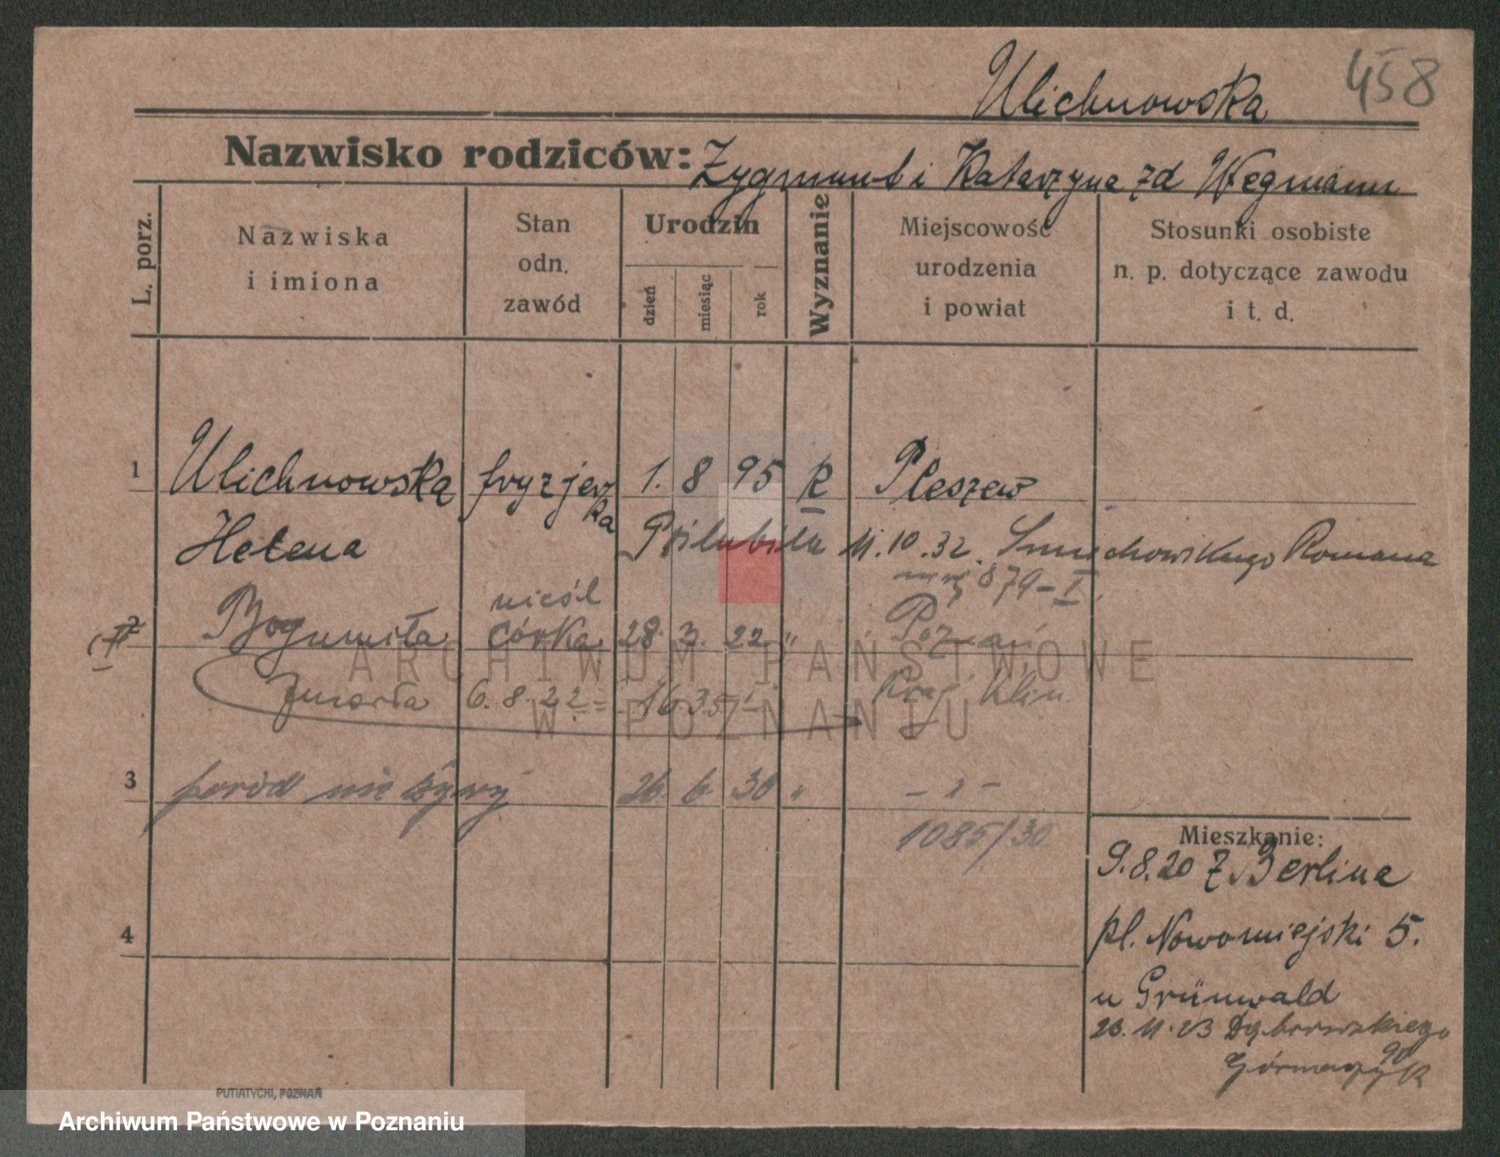 Ulichnowska 458
Nazwisko rodziców: Zygmunt i Katarzyna zd Wegmann
L. porz.
Nazwiska
i imiona
Stan
odn.
zawód
Urodzin
dzień
miesiąc
rok
Wyznanie
Miejscowość
urodzenia
i powiat
Stosunki osobiste
n. p. dotyczące zawodu
i t. d.
1 Ulichnowska fryzjer 1. 8 95 R Pleszew
ka
Helena Poślubiła 11.10.32. Romana
879-I.
nieśl
2 Bogumiła córka 28. 3. 22 " Poznań
Zmarła 6.8.22 = 16 35
3 poród nie żywy 26 6 30 " - " -
1085/30
Mieszkanie:
9.8.20 z Berlina
pl. Nowomiejski 5.
4
u Grünwald
23.11.23 Dąbrowskiego
90
PUTIATYCKI, POZNAŃ
ARCHIWUM PAŃSTWOWE
W POZNANIU
Archiwum Państwowe w Poznaniu